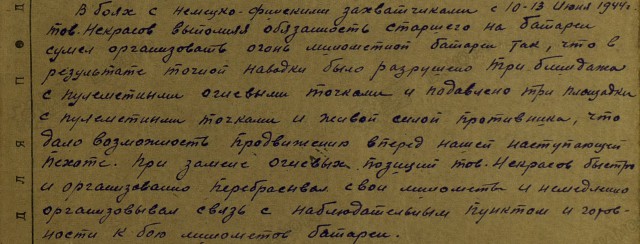 В боях с немецко-финскими захватчиками с 10-13 июня 1944г
тов. Некрасов выполняя обязаность старшего на батареи
сумел организовать огонь минометной батареи так, что в
результате точной наводки было разрушено три блиндажа
с пулеметными огневыми точками и подавлено три площадки
с пулеметными точками и живой силой противника, что
дало возможность продвижению вперед нашей наступающей
пехоте. При замене огневых позиций тов. Некрасов быстро
и организовано перебрасывал свои минометы и немедленно
организовывал связь с наблюдательным пунктом и готов-
ности к бою минометов батареи.
Д Л Я П О Д